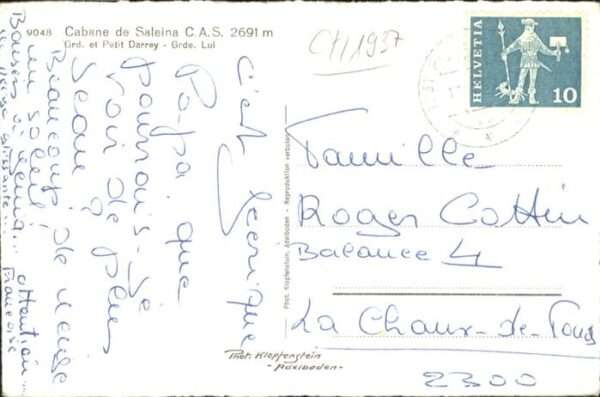 9048 Cabane de Saleina C.A.S. 2691 m
Grd. et Petit Darrey - Grde. Lui
CH/1937
HELVETIA
10
c'est féerique
Papa que
pourrais-je
voir de plus
beau ?
Beaucoup de neige
un soleil
Baisers
attention
Françoise
Phot. Klopfenstein, Adelboden - Reproduktion verboten
Famille
Roger Cottin
Balance 4
La Chaux-de-Fonds
2300
Phot. Klopfenstein
- Adelboden -